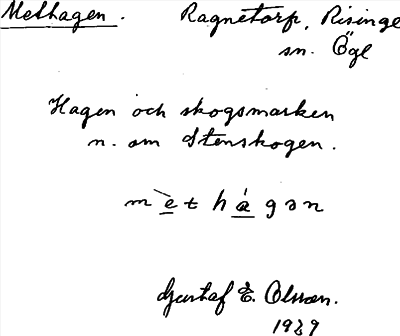 Methagen. Ragnetorp, Risinge
sn. Ögl
Hagen och skogsmarken
n. om Stenskogen.
mèt hágən
Gustaf E. Olsson.
1929